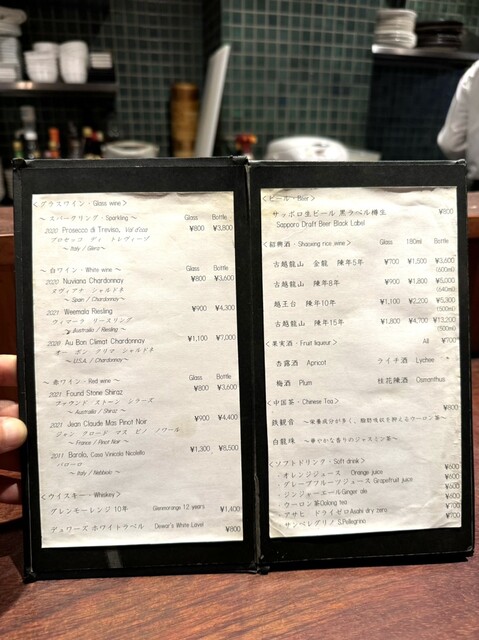 <グラスワイン・Glass wine>
～ スパークリング・Sparkling ～ Glass Bottle
2020 Prosecco di Treviso, Val d'oca ¥800 ¥3,800
プロセッコ ディ トレヴィーゾ
～ Italy / Glera～
～ 白ワイン・White wine ～ Glass Bottle
2020 Nuviana Chardonnay ¥800 ¥3,600
ヌヴィアナ シャルドネ
～ Spain / Chardonnay～
2021 Weemala Riesling ¥900 ¥4,300
ウィマーラ リースリング
Australia / Riesling ～
2020 Au Bon Climat Chardonnay ¥1,100 ¥7,000
オー ボン クリマ シャルドネ
～ U.S.A. / Chardonnay～
～ 赤ワイン・Red wine ～ Glass Bottle
2021 Found Stone Shiraz ¥800 ¥3,600
ファウンド ストーン シラーズ
～ Australia / Shiraz ～
2021 Jean Claude Mas Pinot Noir ¥900 ¥4,400
ジャン クロード マス ピノ ノワール
～ France / Pinot Noir ～
2011 Barolo, Casa Vinicola Nicolello ¥1,300 ¥8,500
バローロ
～ Italy / Nebbiolo ～
<ウイスキー・Whiskey>
グレンモーレンジ 10年 Glenmorange 12 years ¥1,400
デュワーズ ホワイトラベル Dewar's White Lavel ¥800
<ビール・Beer>
サッポロ生ビール 黒ラベル樽生 ¥800
Sapporo Draft Beer Black Label
<紹興酒・Shaoxing rice wine> Glass 180ml Bottle
古越龍山 金龍 陳年5年 ¥700 ¥1,500 ¥3,600
(600ml)
古越龍山 陳年8年 ¥900 ¥1,800 ¥5,000
(640ml)
越王台 陳年10年 ¥1,100 ¥2,200 ¥5,300
(500ml)
古越龍山 陳年15年 ¥1,800 ¥4,700 ¥13,200
(500ml)
<果実酒・Fruit liqueur> All ¥700
杏露酒 Apricot ライチ酒 Lychee
梅酒 Plum 桂花陳酒 Osmanthus
<中国茶・Chinese Tea> ¥800
鉄観音 ～栄養成分が多く、脂肪吸収を抑えるウーロン茶～
白龍珠 ～華やかな香りのジャスミン茶～
<ソフトドリンク・Soft drink>
・オレンジジュース Orange juice ¥600
・グレープフルーツジュース Grapefruit juice ¥600
・ジンジャーエールGinger ale ¥600
・ウーロン茶Oolong tea ¥600
・アサヒ ドライゼロAsahi dry zero ¥700
・サンペレグリノ S.Pellegrino ¥700